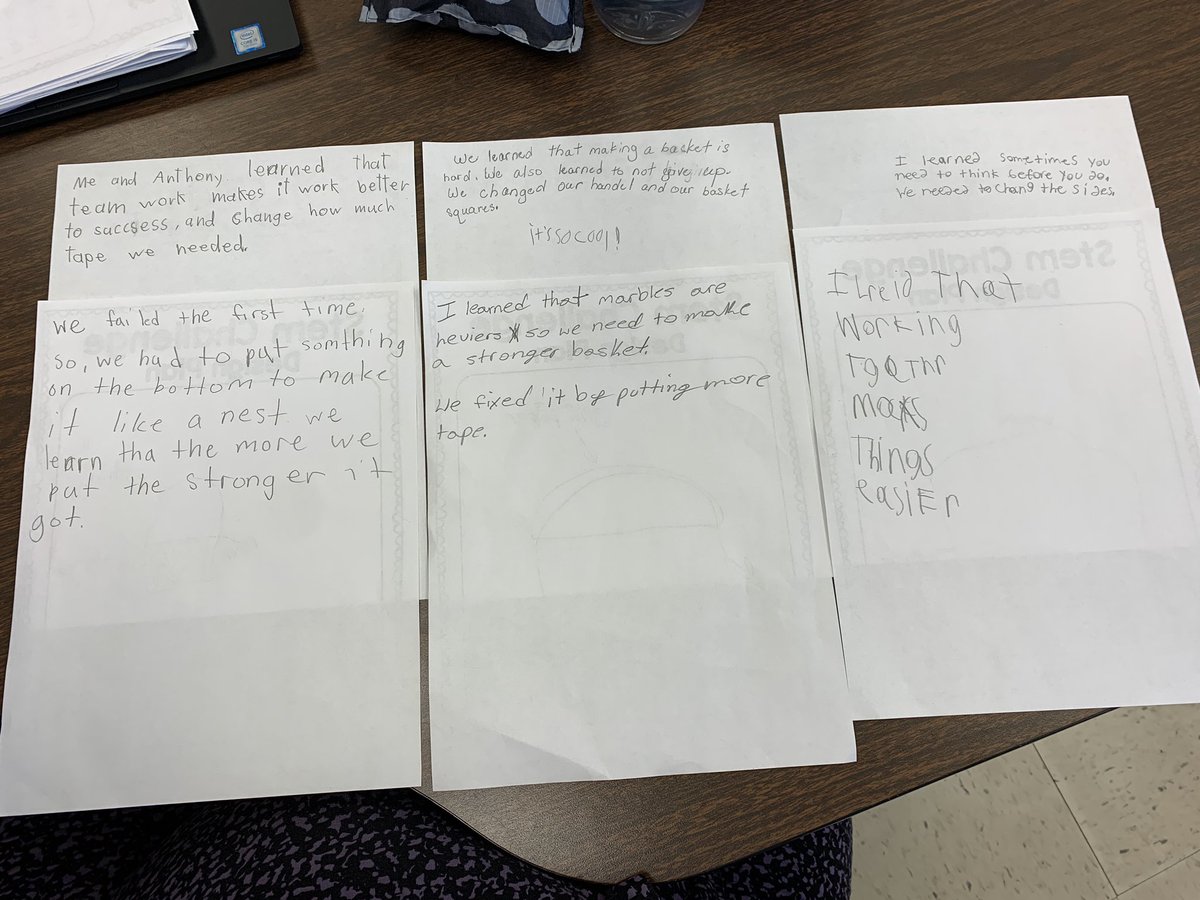 intel
CORE i5
Me and Anthony learned that
team work makes it work better
to succsess, and change how much
tape we needed.
We learned that making a basket is
hard. We also learned to not give up.
We changed our handel and our basket
squares.
it's so cool!
I learned sometimes you
need to think before you do.
We needed to chang the sides.
We failed the first time.
So, we had to put somthing
on the bottom to make
it like a nest we
learn tha the more we
put the stronger it
got.
I learned that marbles are
heviers so we need to make
a stronger basket.
We fixed it by putting more
tape.
Stem Challenge
I Lreld That
Working
TgeThr
Makes
Things
easiEr